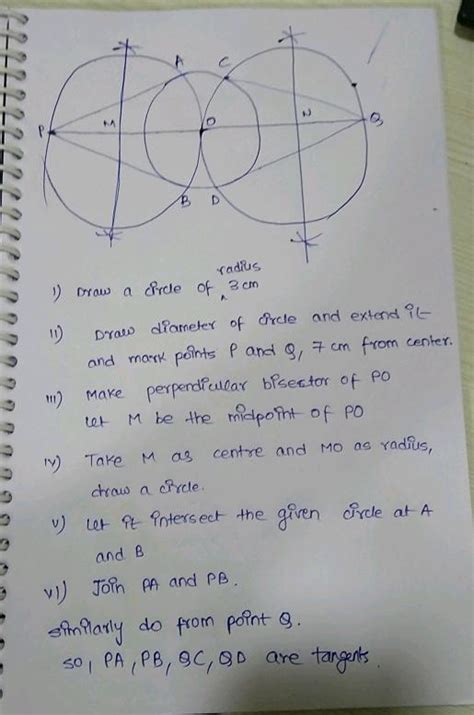 A C
P M O N Q
B D
radius
i) Draw a circle of ^ 3 cm
ii) Draw diameter of circle and extend it
and mark points P and Q, 7 cm from center.
iii) Make perpendicular bisector of PO
Let M be the midpoint of PO
iv) Take M as centre and MO as radius,
draw a circle.
v) Let it intersect the given circle at A
and B
vi) Join PA and PB.
similarly do from point Q.
so, PA, PB, QC, QD are tangents.